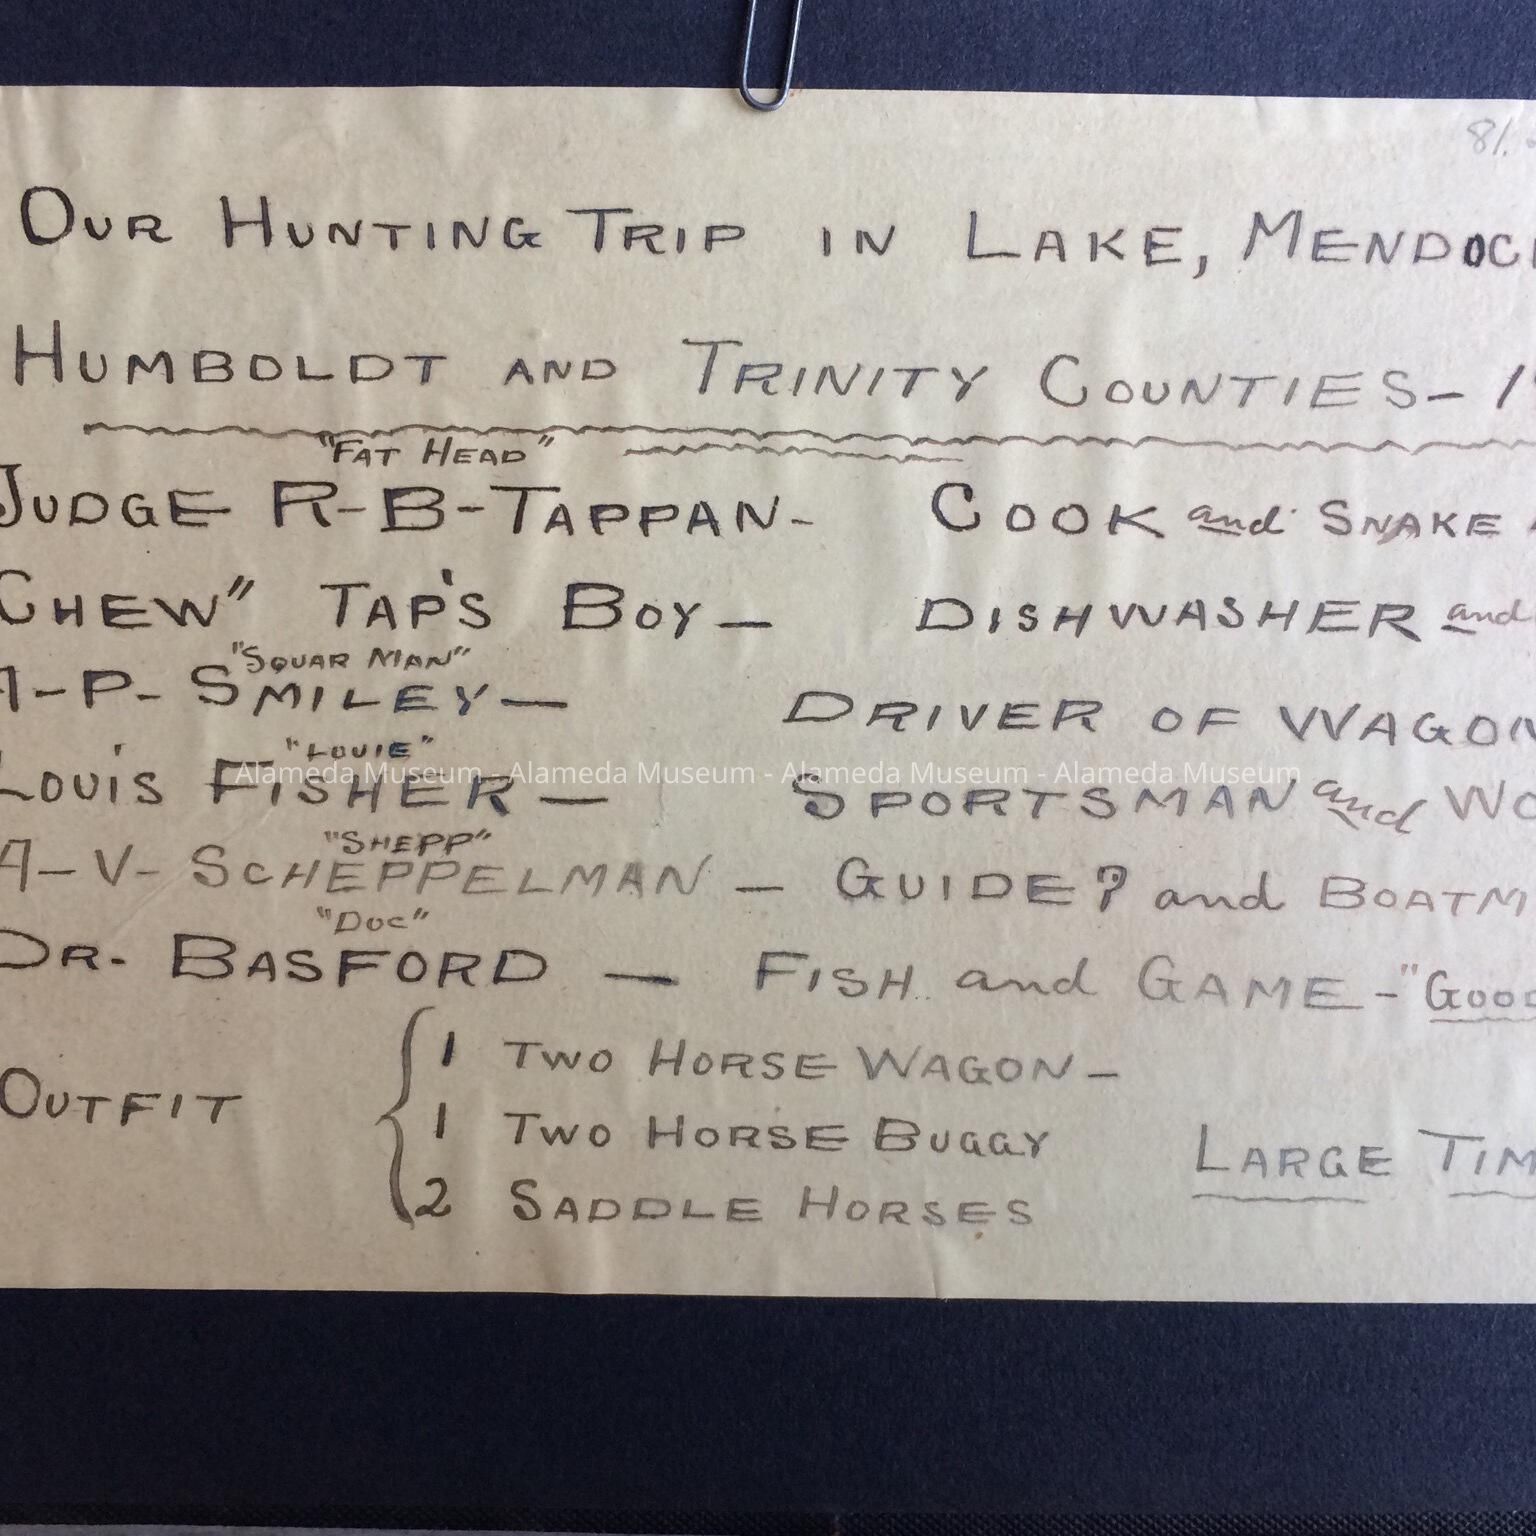 81.
OUR HUNTING TRIP IN LAKE, MENDOCI
HUMBOLDT AND TRINITY COUNTIES- 1
"FAT HEAD"
JUDGE R-B-TAPPAN- COOK and SNAKE
CHEW" TAP'S BOY- DISHWASHER and
"SQUAR MAN"
A-P- SMILEY- DRIVER OF WAGON
"LOUIE"
LOUIS FISHER- SPORTSMAN and WO
Alameda Museum - Alameda Museum - Alameda Museum - Alameda Museum
"SHEPP"
A-V- SCHEPPELMAN - GUIDE? and BOATM
"DOC"
DR. BASFORD - FISH and GAME-"GOOD
OUTFIT { 1 TWO HORSE WAGON-
1 TWO HORSE BUGGY
LARGE TIM
2 SADDLE HORSES